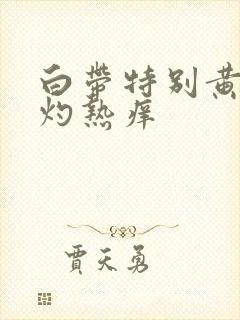 白带特别黄
灼热痒
賈天勇